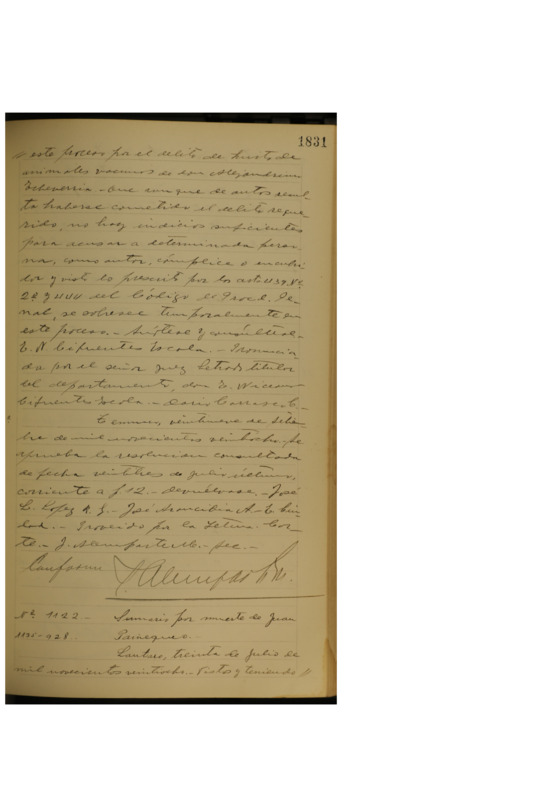 1831
este proceso por el delito de hurto de
animales vacunos de don Alejandrino
Echeverria - Que aunque de autos resul-
ta haberse cometido el delito reque-
rido, no hay indicios suficientes
para acusar a determinada perso-
na, como autor, cómplice o encubri-
dor y visto lo prescrito por los arts 439 Nº
2º y 444 del Código de Proced. Pe-
nal, se sobresee temporalmente en
este proceso. - Anótese y consúltese. -
E. N Cifuentes Escala. - Pronuncia-
da por el señor juez letrado titular
del departamento, don E. Nicanor
Cifuentes Escala. - Dario Carrasco C. -
Temuco, veintinueve de
de mil novecientos veintiocho. - Se
aprueba la resolucion consultada
de fecha veintitres de julio último,
corriente a f 12. - Devuélvase. - José
L. Lopez R. J. - José Arancibia A. - 
Proveido por la Iltma. Cor-
te. - J. Alemparte M. - Sec. -
Conforme
Nº 1122 - Sumario por muerte de Juan
928. 
Lautaro, treinta de julio de
mil novecientos veintiocho. - Vistos y teniendo